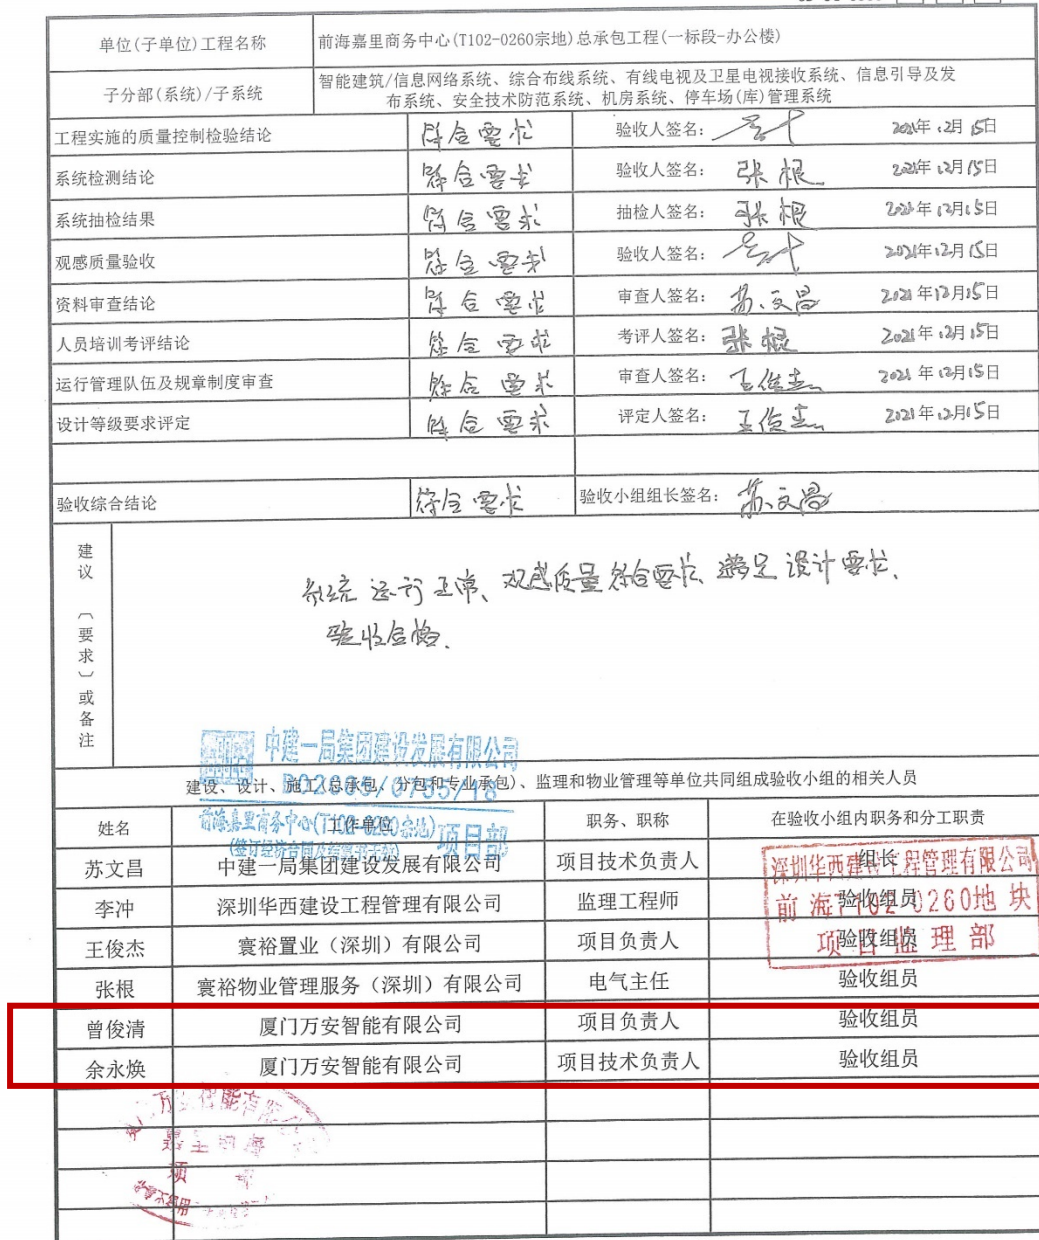 单位(子单位)工程名称 前海嘉里商务中心(T102-0260宗地)总承包工程(一标段-办公楼)
子分部(系统)/子系统 智能建筑/信息网络系统、综合布线系统、有线电视及卫星电视接收系统、信息引导及发
布系统、安全技术防范系统、机房系统、停车场(库)管理系统
工程实施的质量控制检验结论 符合要求 验收人签名: 2021年12月15日
系统检测结论 符合要求 验收人签名: 张根 2021年12月15日
系统抽检结果 符合要求 抽检人签名: 张根 2021年12月15日
观感质量验收 符合要求 验收人签名: 2021年12月15日
资料审查结论 符合要求 审查人签名: 苏文昌 2021年12月15日
人员培训考评结论 符合要求 考评人签名: 张根 2021年12月15日
运行管理队伍及规章制度审查 符合要求 审查人签名: 王俊杰 2021年12月15日
设计等级要求评定 符合要求 评定人签名: 王俊杰 2021年12月15日
验收综合结论 符合要求 验收小组组长签名: 苏文昌
建议〔要求〕或备注
系统运行正常、观感质量符合要求、满足设计要求、
验收合格.
中建一局集团建设发展有限公司
建设、设计、施工(总承包、分包和专业承包)、监理和物业管理等单位共同组成验收小组的相关人员
前海嘉里商务中心(T102-0260宗地)项目部
姓名 工作单位 职务、职称 在验收小组内职务和分工职责
苏文昌 中建一局集团建设发展有限公司 项目技术负责人 组长
李冲 深圳华西建设工程管理有限公司 监理工程师 验收组员
王俊杰 寰裕置业（深圳）有限公司 项目负责人 验收组员
张根 寰裕物业管理服务（深圳）有限公司 电气主任 验收组员
曾俊清 厦门万安智能有限公司 项目负责人 验收组员
余永焕 厦门万安智能有限公司 项目技术负责人 验收组员
深圳华西建设工程管理有限公司
前海T102-0260地块
项目监理部